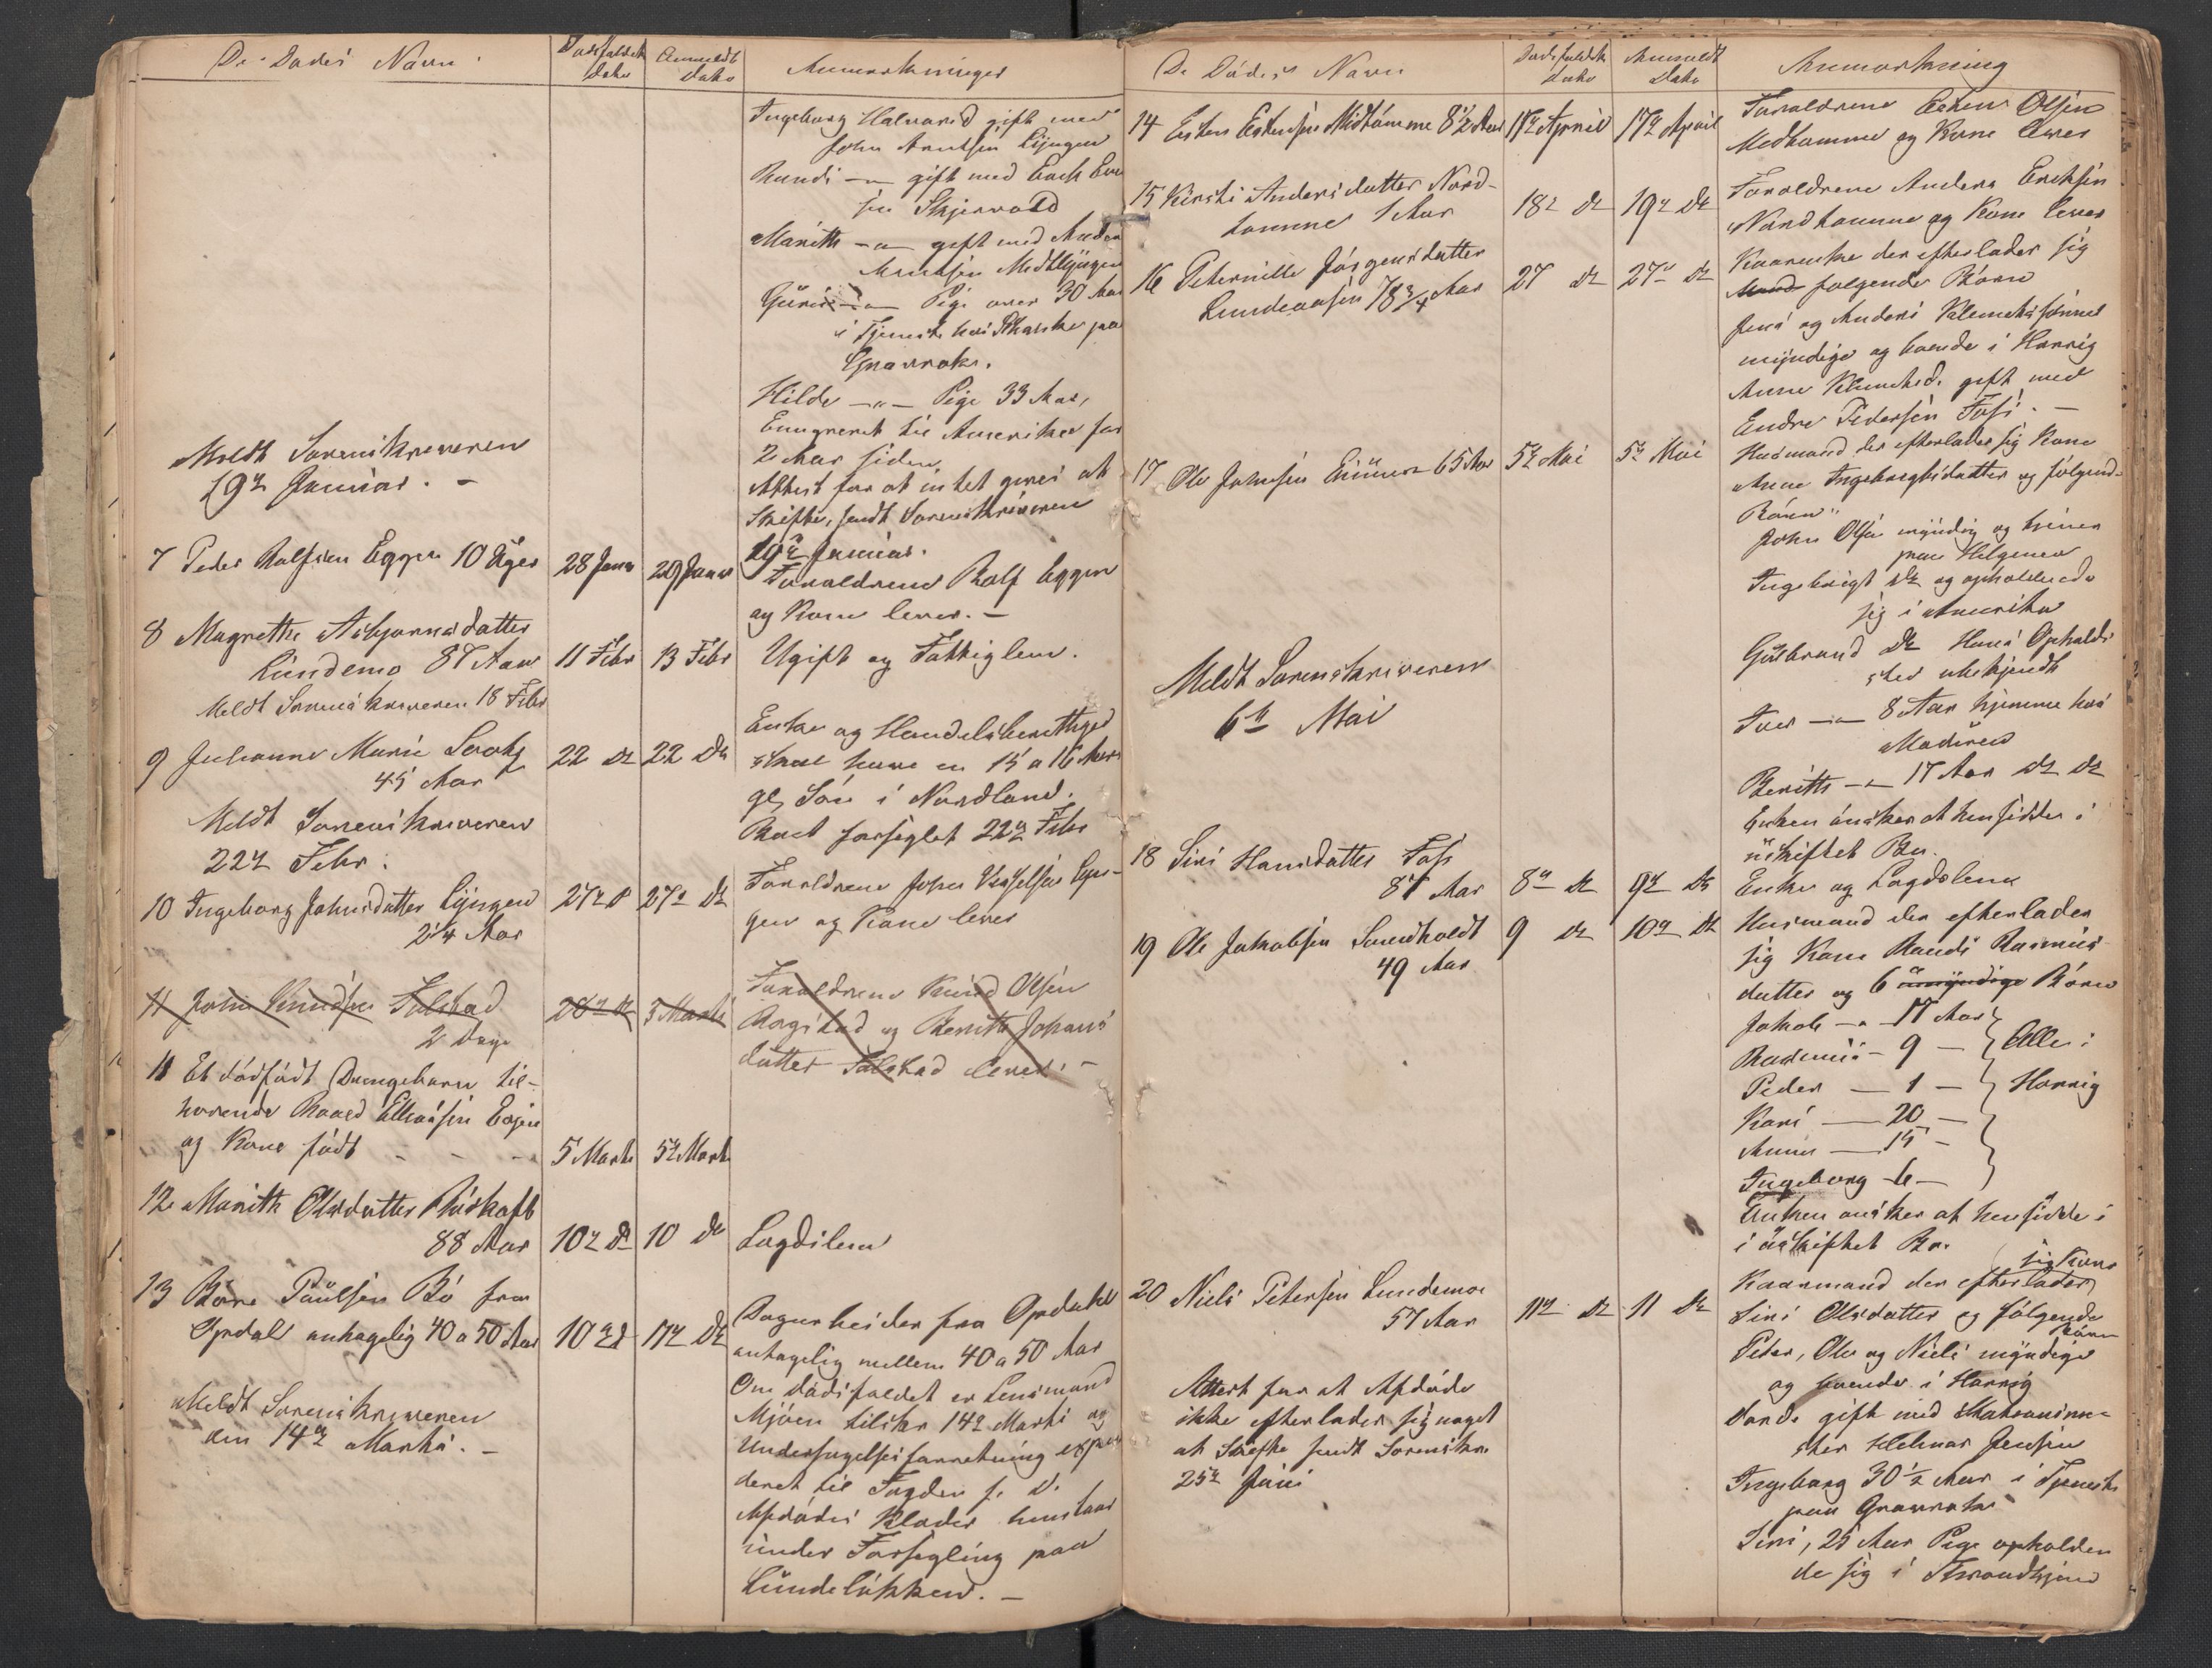 De Dødes Navn
Dødsfaldets Dato
Anmeldt Dato
Anmærkninger
Ingeborg Halvorsd gift med
John Arntsen Lijngen
Randi —"— gift med Esch
sen Skjervold
Marith —"— gift med Anders
Arntsen Medtlÿngen
Guri —"— Pige over 30 Aar
i Tjeneste hos Skanke paa
Graaraker.
Hilde —"— Pige 33 Aar,
Emigreret til Amerika for
2 Aar siden
Attest for at intet gives at
Skifte, sendt Sorenskriveren
19de Januar.
Meldt Sorenskriveren
19de Januar. —
7 Peder Rolfsen Eggen 10 Uger
28 Janr
29 Janr
Foreldrene Rolf Eggen
og Kone lever. —
8 Magrethe Asbjørnsdatter
Lundemo 87 Aar
11 Febr
13 Febr
Ugift og Fattiglem.
Meldt Sorenskriveren 18 Febr
9 Johanne Marie
45 Aar
22 Do
22 Do
Enke og Handelsberettiget
skal have en 15 a 16 Aars
gl, Søn i Nordland.
Boet forseglet 22de Febr
Meldt Sorenskriveren
22de Febr.
10 Ingeborg Johnsdatter Lijngen
2 1/4 Aar
27de D
27de Do
Foreldrene John Lyn-
gen og Kone lever
11 John Knudsen Folstad
2 Dage
28de Do
3 Marts
Foreldrene Knud Olsen
Rogstad og Berith Johans
datter Folstad lever. —
11 Et dødfødt Drengebarn til-
hørende Baard Ellevsen
og Kone født - - -
5 Marts
5te Marts
12 Marith Olsdatter Riskaft
88 Aar
10de Do
10 Do
Lægdslem
13 Børe Paulsen Bø fra
Opdal antagelig 40 a 50 Aar
10de D
17de Do
Dagarbeider fra Opdahl
antagelig mellem 40 a 50 Aar
Om dødsfaldet er Lensmand
Mjøen tilskr 14de Marts og
Undersøgelsesforretning
deret til Fogden s. D.
Afdødes Klæder henstaar
under Forsegling paa
Lundeløkken. —
Meldt Sorenskriveren
den 14de Marts. —
De Dødes Navn
Dødsfaldets Dato
Anmeldt Dato
Anmærkning
14 Esten Estensen Midthamme 8 1/2 Aar
17de April
17de April
Foreldrene Esten Olsen
Medhamme og Kone lever
15 Kirsti Andersdatter Nord-
hamme 1 Aar
18de Do
19de Do
Foreldrene Anders Eriksen
Nordhamme og Kone lever
16 Peternille Jørgensdatter
Lundeaasen 78 3/4 Aar
27 Do
27de Do
Kaarenke der efterlader sig
Mand følgende Børn
Jens og Anders Klemetssønner
myndige og boende i Horrig
Anne Klemetsd. gift med
Endre Pedersen Foss. —
17 Ole Johnsen 65 Aar
5te Mai
5te Mai
Husmand der efterlader sig Kone
Anne Ingebrigtsdatter og følgende
Børn"
John Olsen myndig og tjener
paa
Ingebrigt Do og opholdende
sig i Amerika
Gulbrand Do Hans Opholds
sted ubekjendt
Tore —"— 8 Aar hjemme hos
Moderen
Berith —"— 17 Aar Do Do
Enken ønsker at hensidde i
uskiftet Bo.
Meldt Sorenskriveren
6te Mai
18 Siri Hansdatter Foss
87 Aar
8de Do
9de Do
Enke og Lægdslem
19 Ole Jakobsen Sundholdt
49 Aar
9 Do
10de Do
Husmand der efterlader
sig Kone Randi Rasmus-
datter og 6 umyndige Børn
Jakob —"— 17 Aar
Rasmus — 9 —
Peder — 1 —
Kari — 20 —
Anne — 15 —
Ingeborg — 6 —
Alle i
Horrig
Enken ønsker at hensidde i
i uskiftet Bo.
20 Niels Petersen Lundemo
57 Aar
11de Do
11 Do
Kaarmand der efterlader sig Kone
Siri Olsdatter og følgende
Børn
Peder, Ole og Niels myndige
og boende i Horrig
gift med
Helmer Jensen
Ingeborg 30 1/2 Aar i Tjeneste
paa Graaraker
Siri, 25 Aar Pige opholden
de sig i Throndhjem
Attest for at Afdøde
ikke efterlader sig noget
at Skifte sendt Sorenskr.
25de Juni